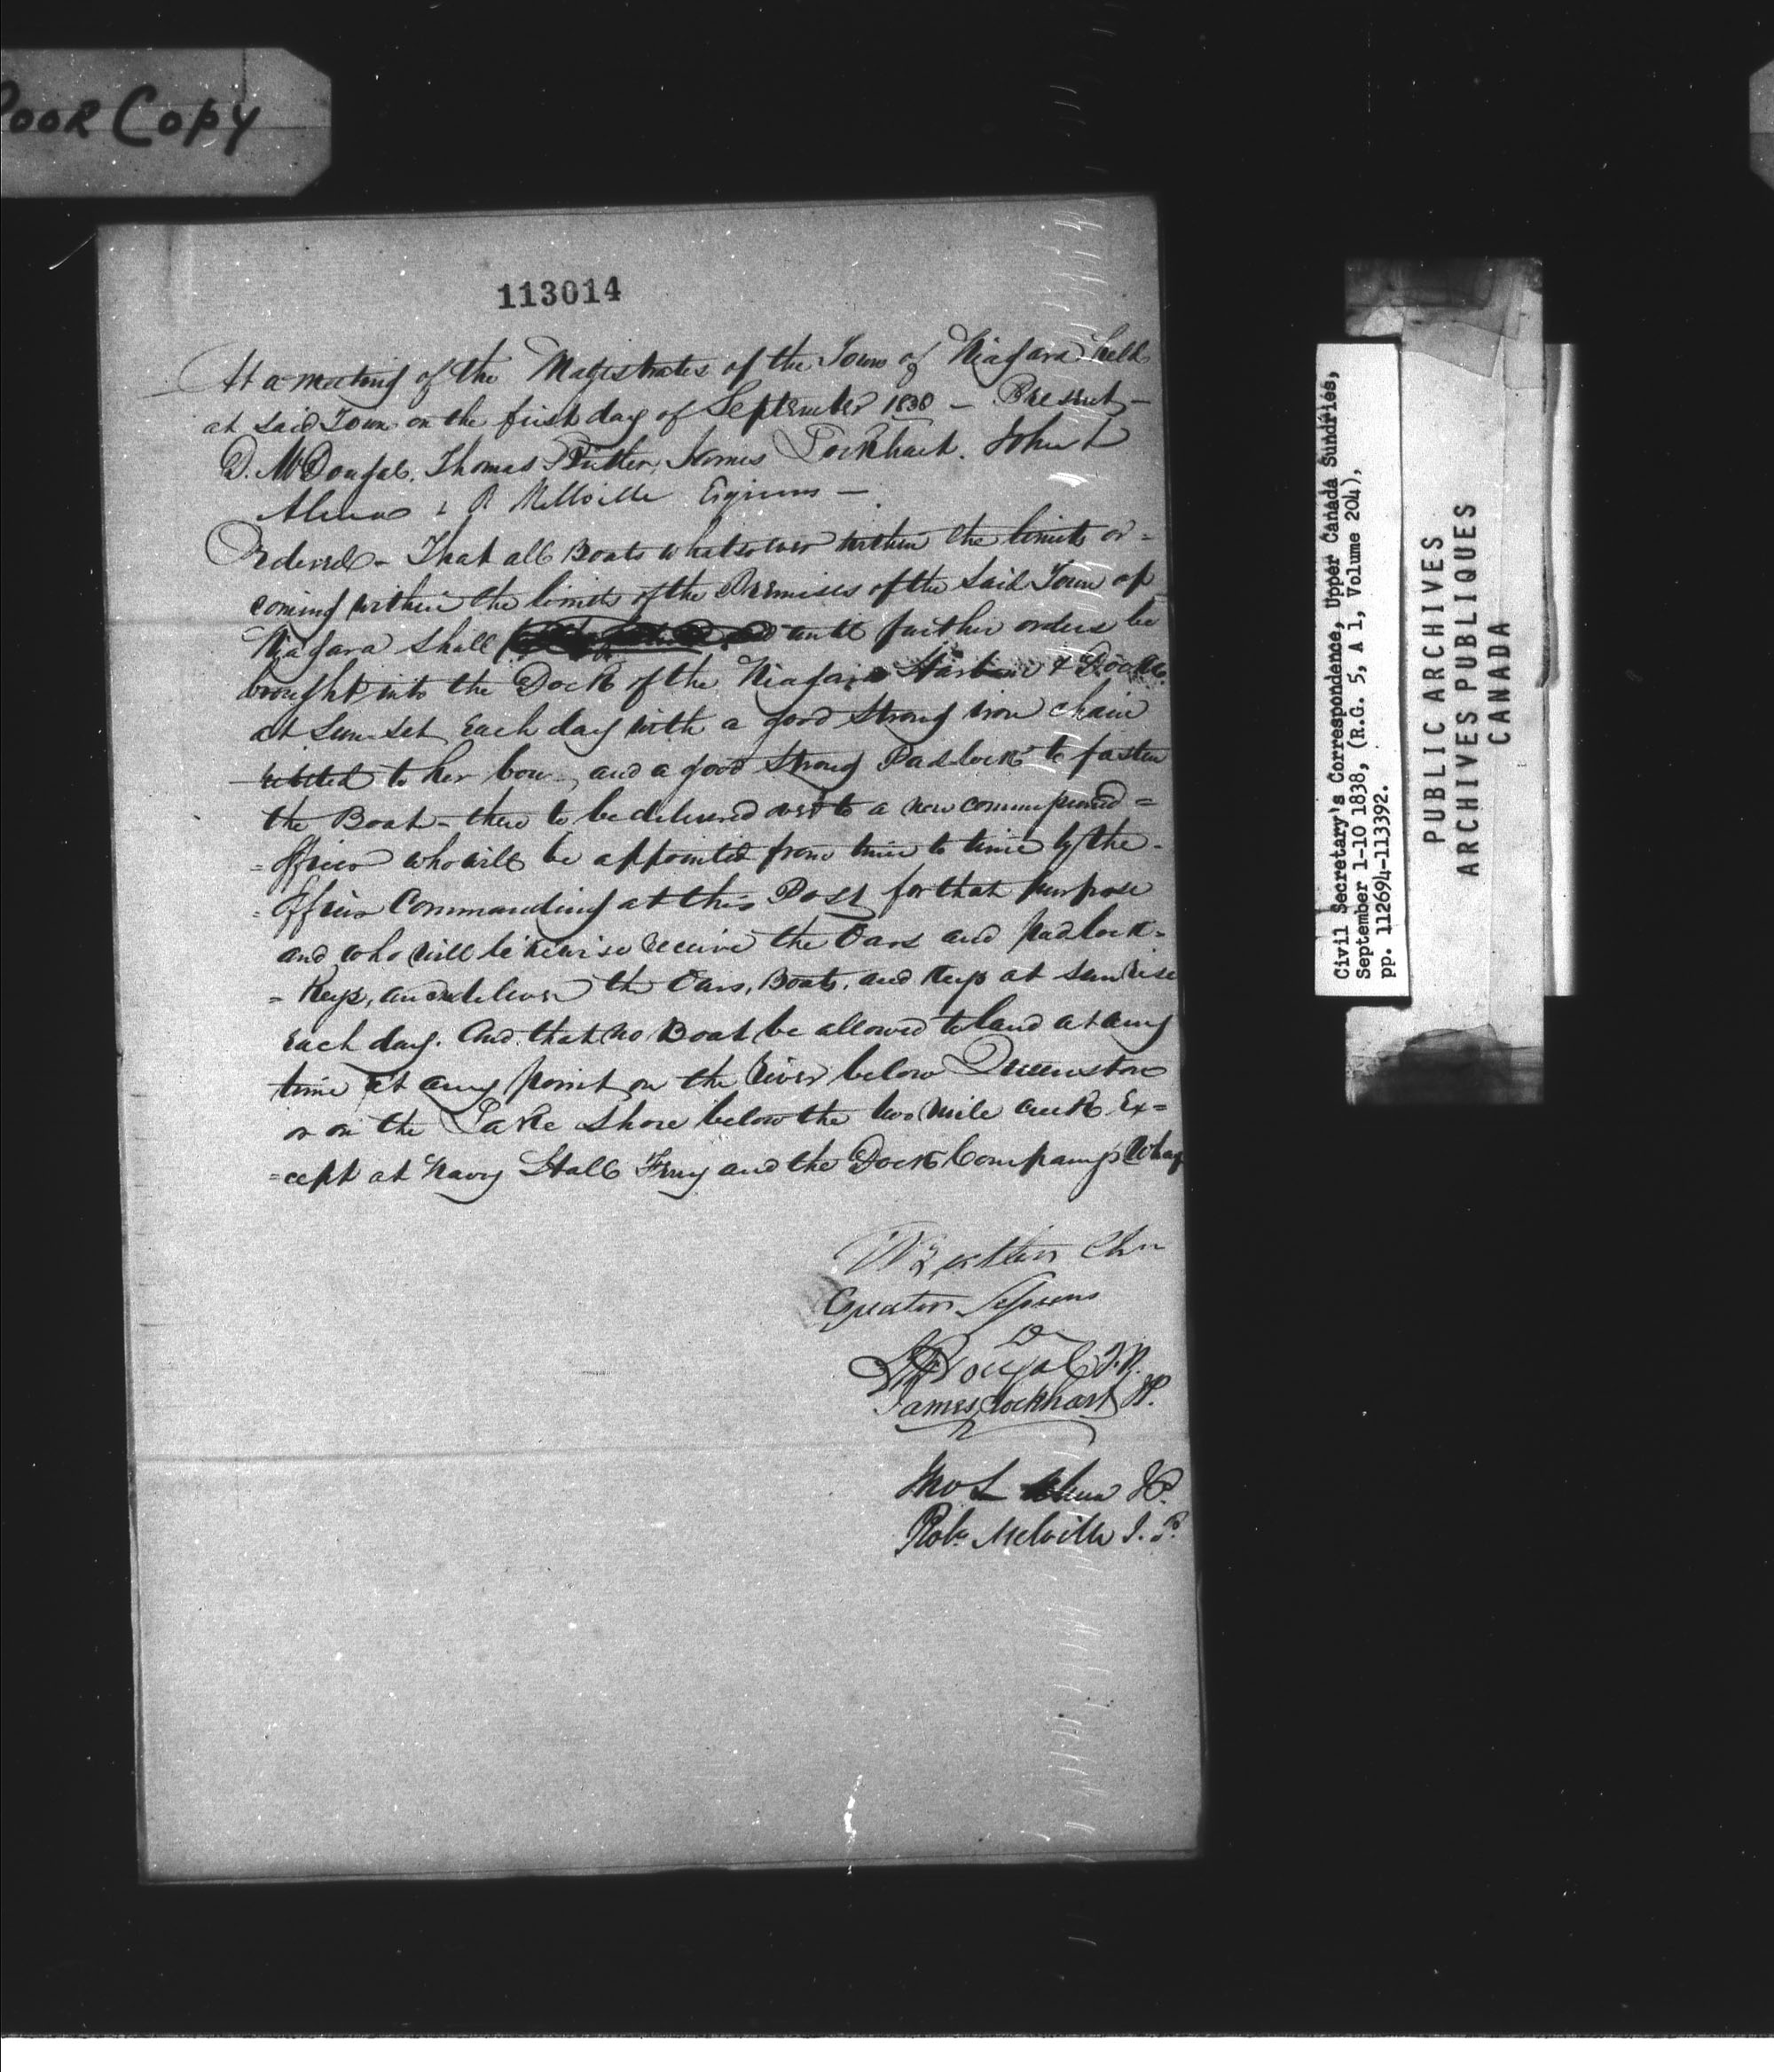 Poor Copy
113014
At a meeting of the Magistrates of the Town of Niagara held
at said Town on the first day of September 1838 — Present —
D. McDougal, Thomas Butler, James Lockhart, John L
Alma & R Mellville Esquires —
Ordered - That all Boats whatsoever within the limits or =
coming within the limits of the Premises of the said Town of
Niagara shall until further orders be
brought into the Dock of the Niagara Harbour & Dock Co.
at Sun set Each day with a good strong iron chain
to her bow, and a good strong Padlock to fasten
the Boat - then to be delivered over to a non commissioned =
= Officer who will be appointed from time to time by the -
= Officer Commanding at this Post for that purpose
and who will likewise receive the Oars and padlock =
= Keys, and deliver the Oars, Boats, and Keys at sun rise
Each day. And that no Boat be allowed to land at any
time at any point on the River below Queenston
or on the Lake Shore below the two mile creek Ex=
=cept at Navy Hall Ferry and the Dock Company's Wharf
Chn
Quarter Sessions
D McDougal J.P.
James Lockhart JP.
Jno L Alma JP.
Robt Melville J.P.
Civil Secretary's Correspondence, Upper Canada Sundries,
September 1-10 1838, (R.G. 5, A 1, Volume 204),
pp. 112694-113392.
PUBLIC ARCHIVES
ARCHIVES PUBLIQUES
CANADA